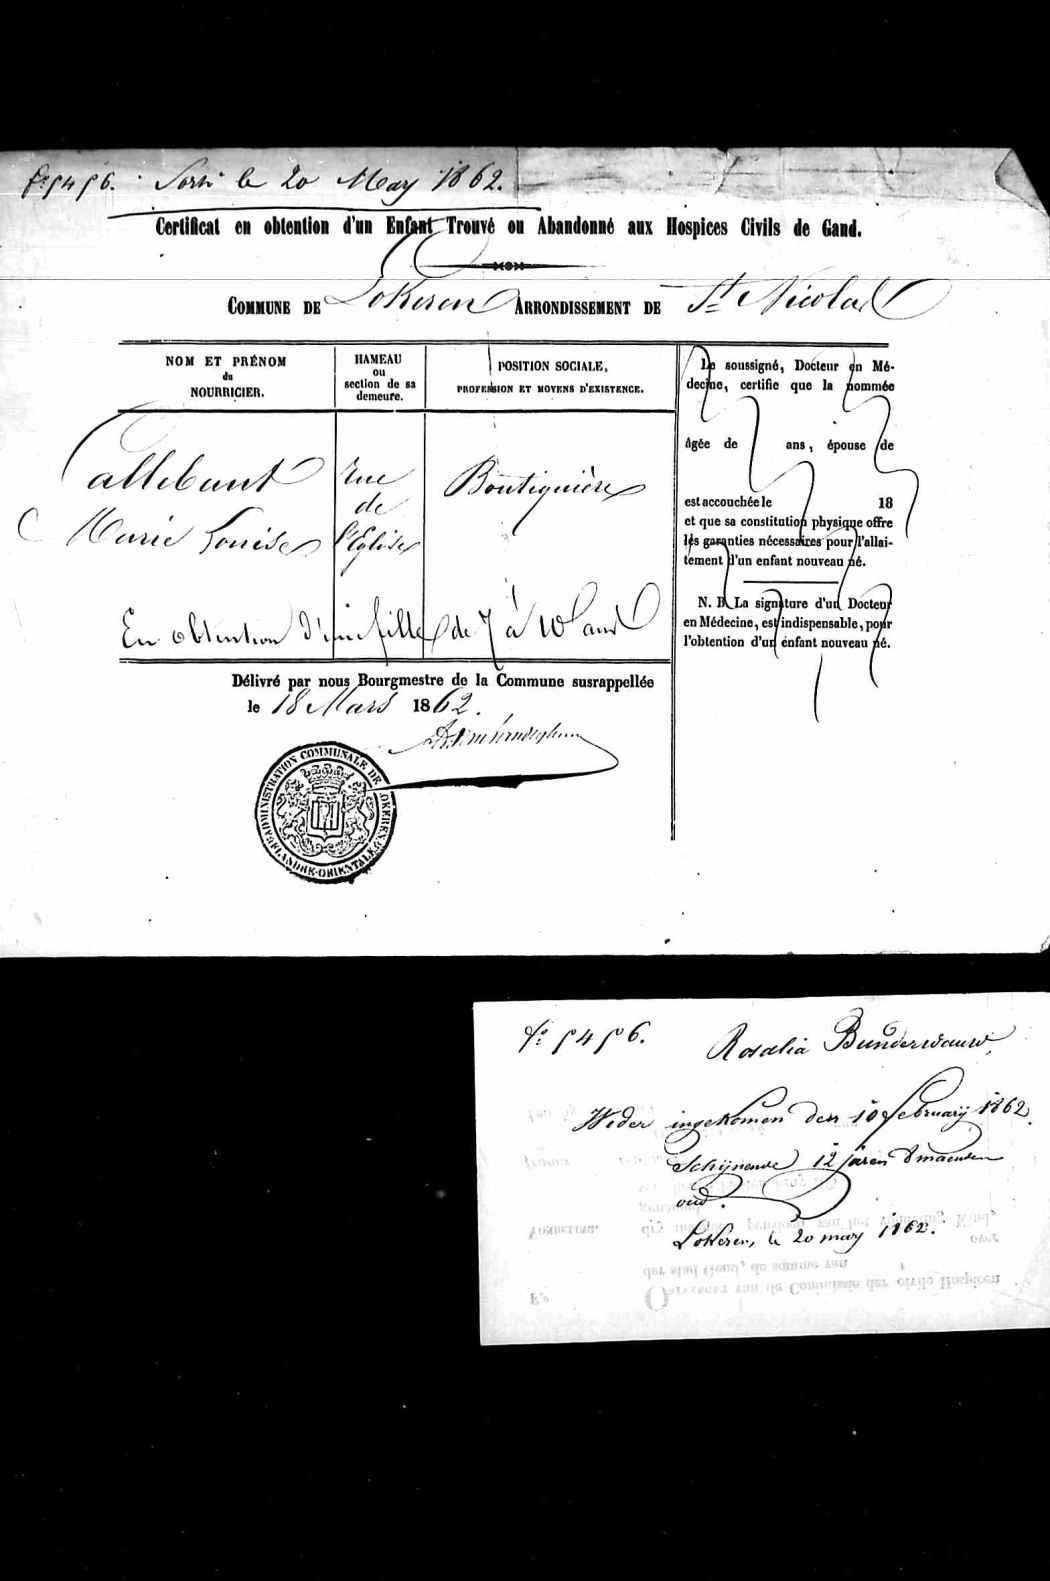 f° 5456. Sorti le 20 May 1862.
Certificat en obtention d'un Enfant Trouvé ou Abandonné aux Hospices Civils de Gand.
COMMUNE DE Lokeren ARRONDISSEMENT DE St Nicolas
NOM ET PRÉNOM
du
NOURRICIER.
HAMEAU
ou
section de sa
demeure.
POSITION SOCIALE,
PROFESSION ET MOYENS D'EXISTENCE.
Callebaut
Marie Louise
rue
de
l'Eglise
Boutiquière
En obtention d'une fille de 7 à 10 ans
Le soussigné, Docteur en Mé-
decine, certifie que la nommée
âgée de ans, épouse de
est accouchée le 18
et que sa constitution physique offre
les garanties nécessaires pour l'allai-
tement d'un enfant nouveau né.
N. B. La signature d'un Docteur
en Médecine, est indispensable, pour
l'obtention d'un enfant nouveau né.
Délivré par nous Bourgmestre de la Commune susrappellée
le 18 Mars 1862.
ADMINISTRATION COMMUNALE DE LOKEREN
FLANDRE-ORIENTALE
f° 5456. Rosalia
Weder ingekomen den 10 february 1862
Schijnende 12 jaren 8 maenden
oud.
Lokeren, le 20 may 1862.